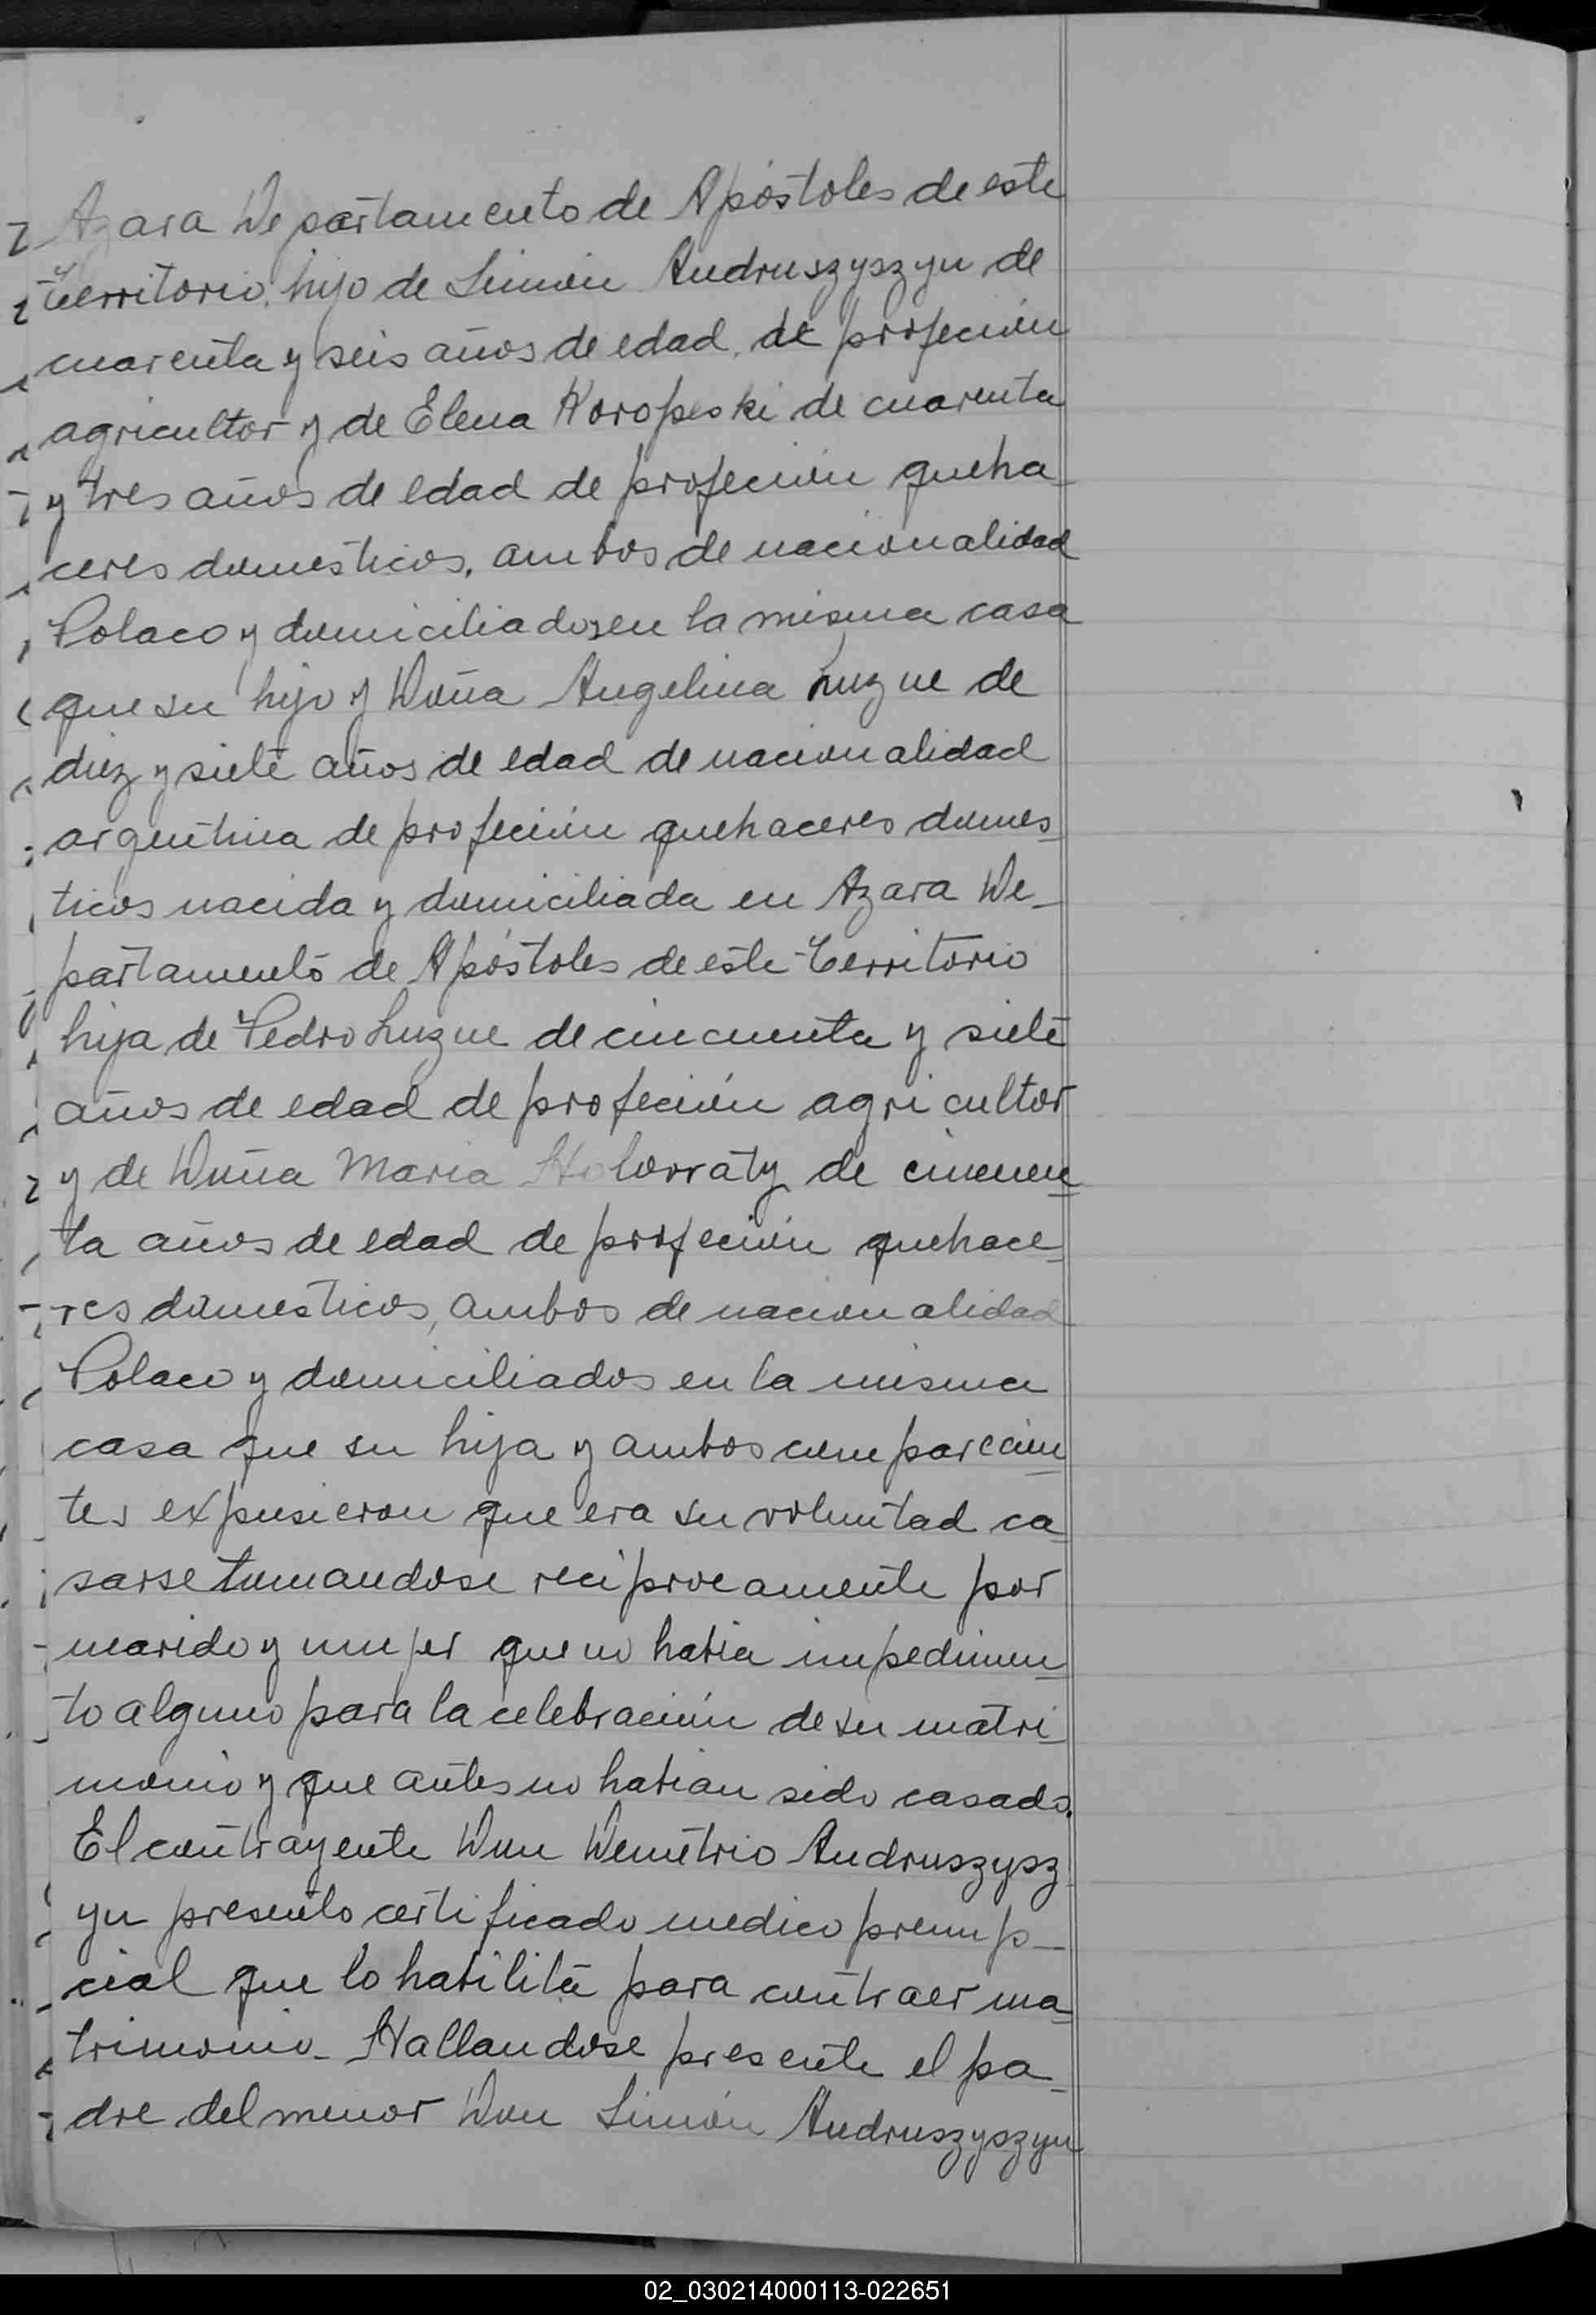 Azara Departamento de Apóstoles de este
Territorio, hijo de Simón Andruszyszyn de
cuarenta y seis años de edad, de profeción
agricultor y de Elena Koropeski de cuarenta
y tres años de edad de profeción queha-
ceres domesticos, ambos de nacionalidad
Polaco y domiciliados en la misma casa
que su hijo y Doña Angelina Luzne de
diez y siete años de edad de nacionalidad
argentina de profeción quehaceres domes-
ticos nacida y domiciliada en Azara De-
partamento de Apóstoles de este Territorio
hija de Pedro Luzne de cincuenta y siete
años de edad de profeción agricultor
y de Doña Maria de cincuen-
ta años de edad de profeción quehace-
res domesticos, ambos de nacionalidad
Polaco y domiciliados en la misma
casa que su hija y ambos comparecien-
tes expusieron que era su voluntad ca-
sarse tomandose reciprocamente por
marido y mujer que no habia impedimen-
to alguno para la celebración de su matri-
monio y que antes no habian sido casado.
El contrayente Don Demétrio Andruszysz-
yn presento certificado medico prenup-
cial que lo habilita para contraer ma-
trimonio- Hallandose presente el pa-
dre del menor Don Simón Andruszyszyn
02_030214000113-022651